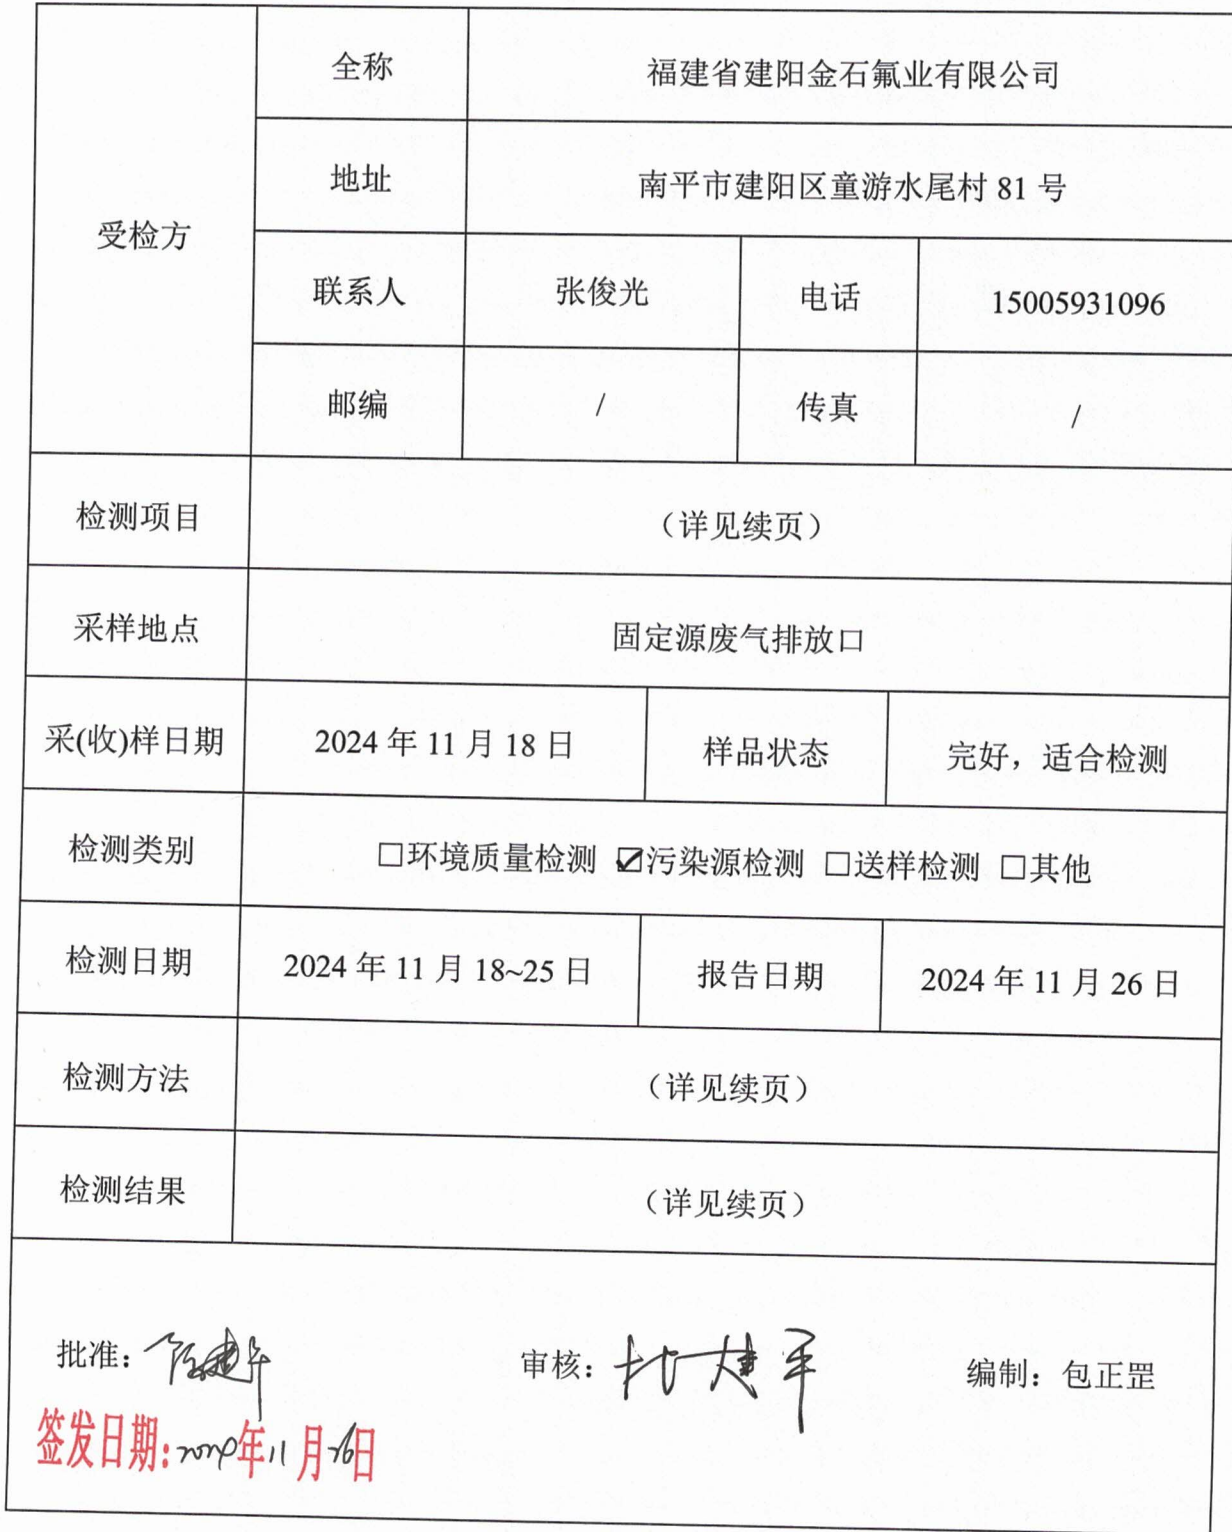 受检方
全称 福建省建阳金石氟业有限公司
地址 南平市建阳区童游水尾村 81 号
联系人 张俊光 电话 15005931096
邮编 / 传真 /
检测项目 （详见续页）
采样地点 固定源废气排放口
采(收)样日期 2024 年 11 月 18 日 样品状态 完好，适合检测
检测类别 □环境质量检测 ☑污染源检测 □送样检测 □其他
检测日期 2024 年 11 月 18~25 日 报告日期 2024 年 11 月 26 日
检测方法 （详见续页）
检测结果 （详见续页）
批准： 审核： 编制：包正罡
签发日期:2024年11月26日